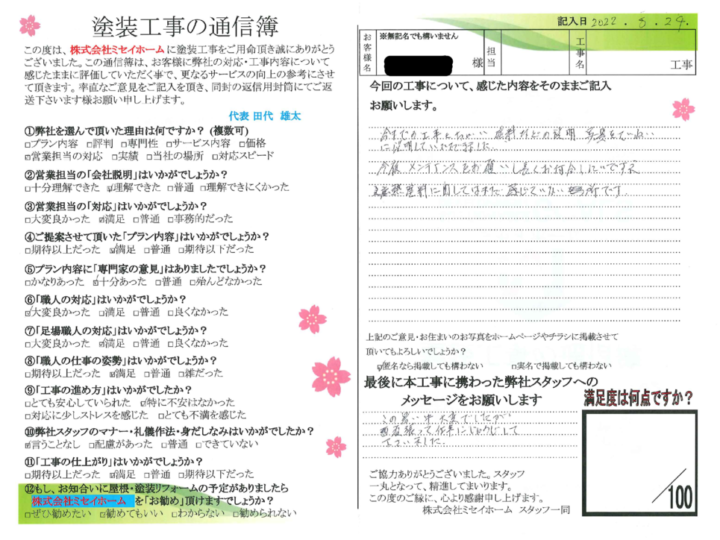 塗装工事の通信簿
この度は、株式会社ミセイホームに塗装工事をご用命頂き誠にありがとう
ございました。この通信簿は、お客様に弊社の対応・工事内容について
感じたままに評価していただく事で、更なるサービスの向上の参考にさせ
て頂きます。率直なご意見をご記入を頂き、同封の返信用封筒にてご返
送下さいます様お願い申し上げます。
代表 田代 雄太
①弊社を選んで頂いた理由は何ですか？（複数可）
□プラン内容 □評判 □専門性 □サービス内容 □価格
☑営業担当の対応 □実績 □当社の場所 □対応スピード
②営業担当の「会社説明」はいかがでしょうか？
□十分理解できた ☑理解できた □普通 □理解できにくかった
③営業担当の「対応」はいかがでしょうか？
□大変良かった ☑満足 □普通 □事務的だった
④ご提案させて頂いた「プラン内容」はいかがでしょうか？
□期待以上だった ☑満足 □普通 □期待以下だった
⑤プラン内容に「専門家の意見」はありましたでしょうか？
□かなりあった ☑十分あった □普通 □殆んどなかった
⑥「職人の対応」はいかがでしょうか？
☑大変良かった □満足 □普通 □良くなかった
⑦「足場職人の対応」はいかがでしょうか？
□大変良かった ☑満足 □普通 □良くなかった
⑧「職人の仕事の姿勢」はいかがでしょうか？
□期待以上だった ☑満足 □普通 □雑だった
⑨「工事の進め方」はいかがでしたか？
□とても安心していられた ☑特に不安はなかった
□対応に少しストレスを感じた □とても不満を感じた
⑩弊社スタッフのマナー・礼儀作法・身だしなみはいかがでしたか？
☑言うことなし □配慮があった □普通 □できていない
⑪「工事の仕上がり」はいかがでしょうか？
□期待以上だった ☑満足 □普通 □期待以下だった
⑫もし、お知合いに屋根・塗装リフォームの予定がありましたら
株式会社ミセイホーム を「お勧め」頂けますでしょうか？
□ぜひ勧めたい □勧めてもいい □わからない □勧められない
記入日 2022.5.29.
お客様名 ※無記名でも構いません 様 担当 工事名 工事
今回の工事について、感じた内容をそのままご記入
お願いします。
に説明していただきました。
今後メンテナンスをお願いし長くお付合したいです
上記のご意見・お住まいのお写真をホームページやチラシに掲載させて
頂いてもよろしいでしょうか？
☑匿名なら掲載しても構わない □実名で掲載しても構わない
最後に本工事に携わった弊社スタッフへの
メッセージをお願いします
満足度は何点ですか？
／100
ご協力ありがとうございました。スタッフ
一丸となって、精進してまいります。
この度のご縁に、心より感謝申し上げます。
株式会社ミセイホーム スタッフ一同